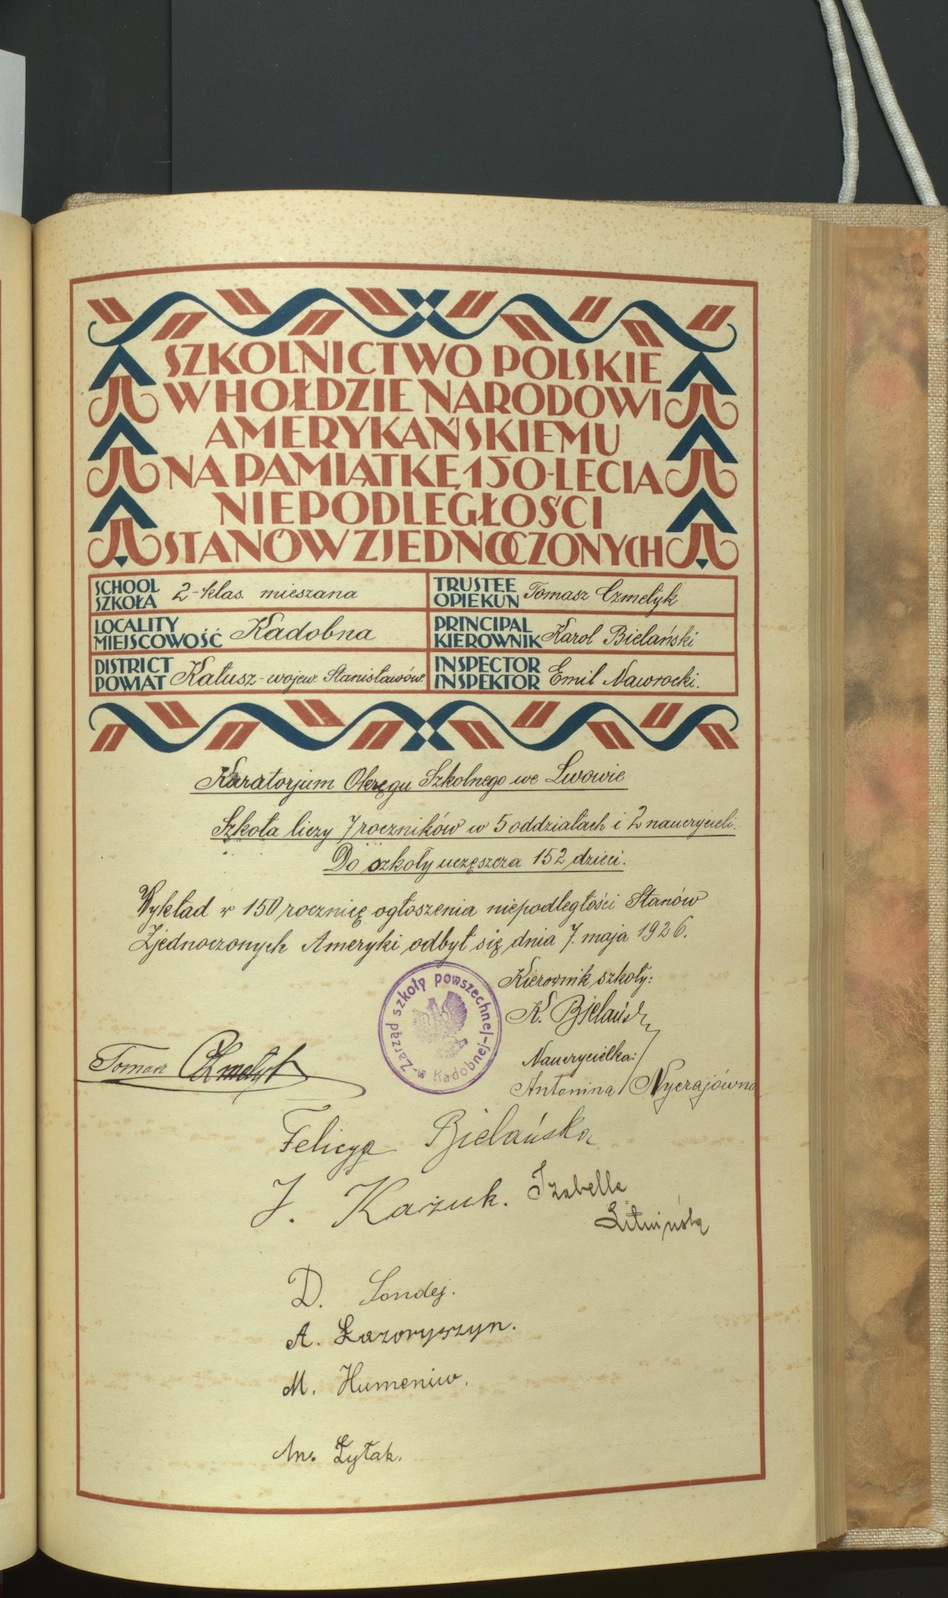 SZKOLNICTWO POLSKIE
W HOŁDZIE NARODOWI
AMERYKAŃSKIEMU
NA PAMIĄTKĘ 150-LECIA
NIEPODLEGŁOŚCI
STANÓW ZJEDNOCZONYCH
SCHOOL SZKOŁA 2-klas. mieszana
TRUSTEE OPIEKUN Tomasz Czmelyk
LOCALITY MIEJSCOWOŚĆ Kadobna
PRINCIPAL KIEROWNIK Karol Bielański
DISTRICT POWIAT Kałusz - wojew. Stanisławów.
INSPECTOR INSPEKTOR Emil Nawrocki.
Kuratorjum Okręgu Szkolnego we Lwowie
Szkoła liczy 7 roczników w 5 oddziałach i 2 nauczycieli.
Do szkoły uczęszcza 152 dzieci.
Wykład w 150 rocznicę ogłoszenia niepodległości Stanów
Zjednoczonych Ameryki odbył się dnia 7. maja 1926.
Kierownik szkoły:
K. Bielański
Zarząd szkoły powszechnej w Kadobnej
Nauczycielka:
Tomasz Czmelyk
Antonina Nyczajówna
Felicya Bielańska
J. Kazuk. Izabella
Litwińska
D. Sondej.
A. Łazoryszyn.
M. Humeniw.
An. Łytak.